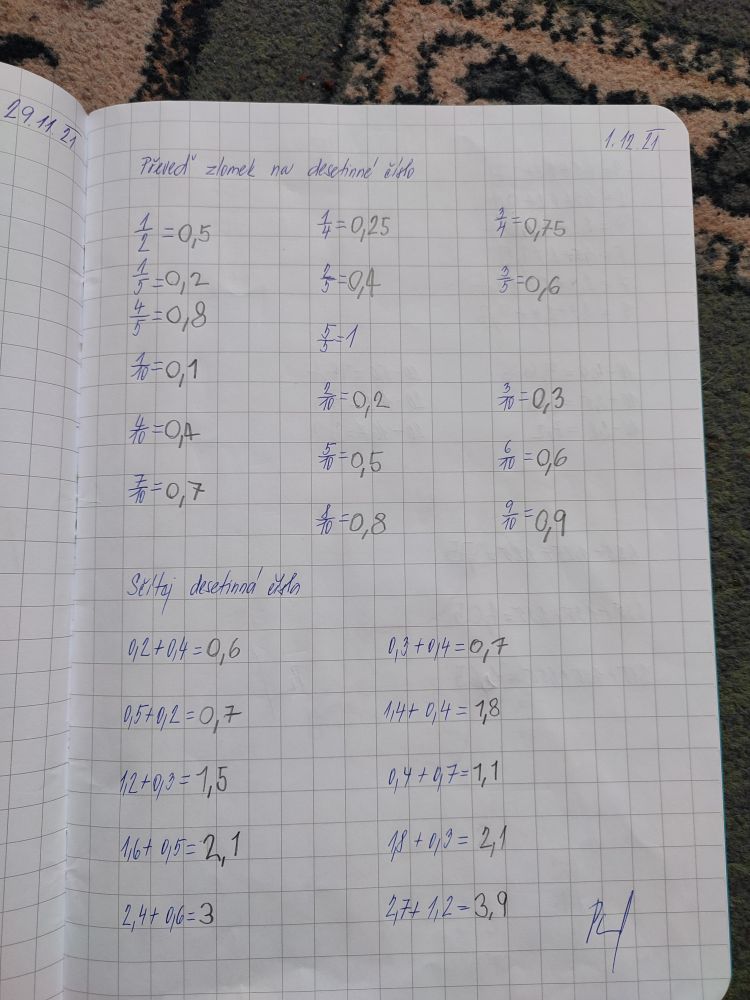 29.11.21
1.12.21
Převeď zlomek na desetinné číslo
1/2 = 0,5 1/4 = 0,25 3/4 = 0,75
1/5 = 0,2 2/5 = 0,4 3/5 = 0,6
4/5 = 0,8 5/5 = 1
1/10 = 0,1 2/10 = 0,2 3/10 = 0,3
4/10 = 0,4 5/10 = 0,5 6/10 = 0,6
7/10 = 0,7 8/10 = 0,8 9/10 = 0,9
Sčítaj desetinná čísla
0,2 + 0,4 = 0,6 0,3 + 0,4 = 0,7
0,5 + 0,2 = 0,7 1,4 + 0,4 = 1,8
1,2 + 0,3 = 1,5 0,4 + 0,7 = 1,1
1,6 + 0,5 = 2,1 1,8 + 0,3 = 2,1
2,4 + 0,6 = 3 2,7 + 1,2 = 3,9